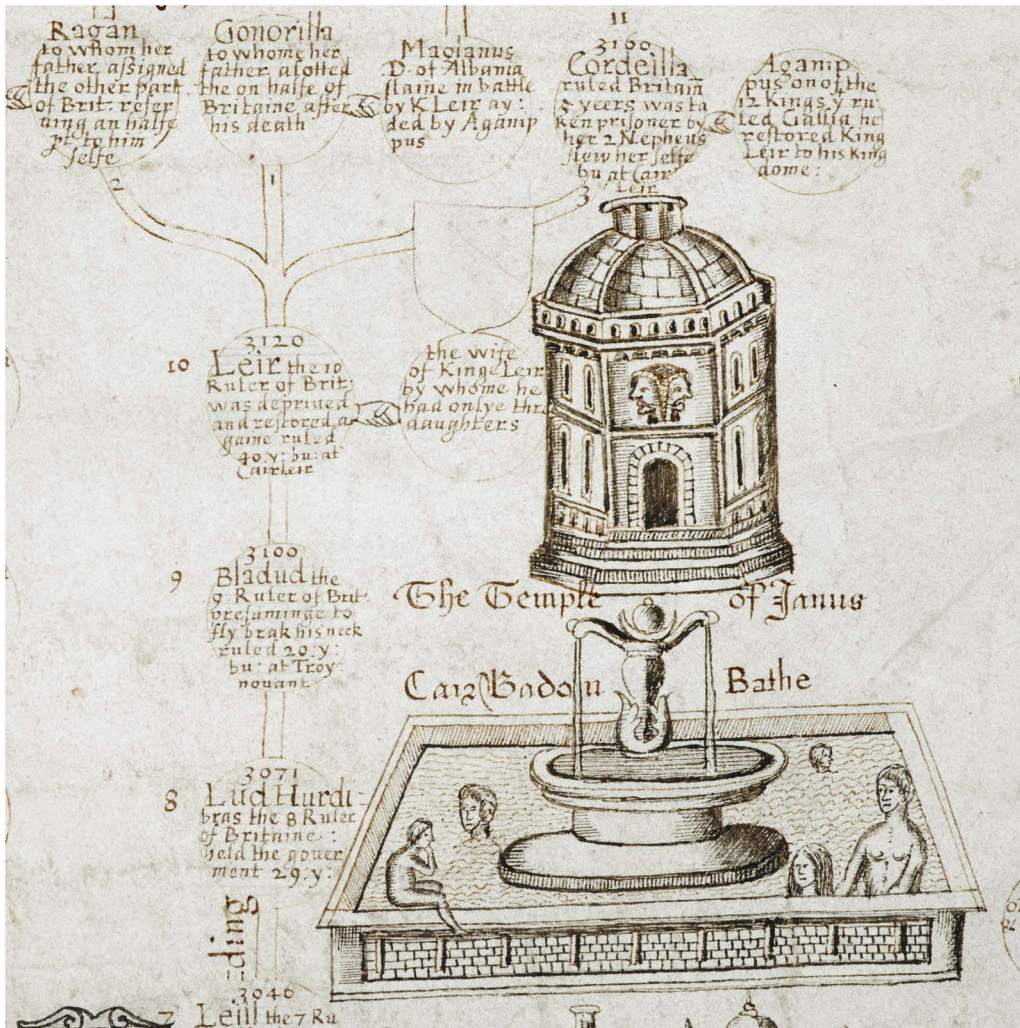 Ragan
to whom her
father assigned
the other part
of Brit: reser
uing an halfe
pt to him
selfe
Gonorilla
to whome her
father alotted
the on halfe of
Britaine after
his death
Maglanus
D. of Albania
slaine in battle
by K Leir ay:
ded by Aganip
pus
11
3160
Cordeilla
ruled Britain
5 yeers was ta
ken prisoner by
her 2 Nepheus
slew her selfe
bu at Cair
Leir
Aganip
pus on of the
12 Kings y ru
led Gallia he
restored King
Leir to his King
dome:
2
1
3
10
3120
Leir the 10
Ruler of Brit:
was depriued
and restored a
gaine ruled
40: y: bu: at
Cairleir
the wife
of Kinge Leir
by whome he
had onlye thr
daughters
9
3100
Bladud the
9 Ruler of Brit
presuminge to
fly brak his neck
ruled 20: y:
bu: at Troy
nouant
The Temple of Janus
Cair Badon Bathe
8
3071
Lud Hurdi
bras the 8 Ruler
of Britaine:
held the gouer
ment 29: y:
ding
3040
7 Leill the 7 Ru